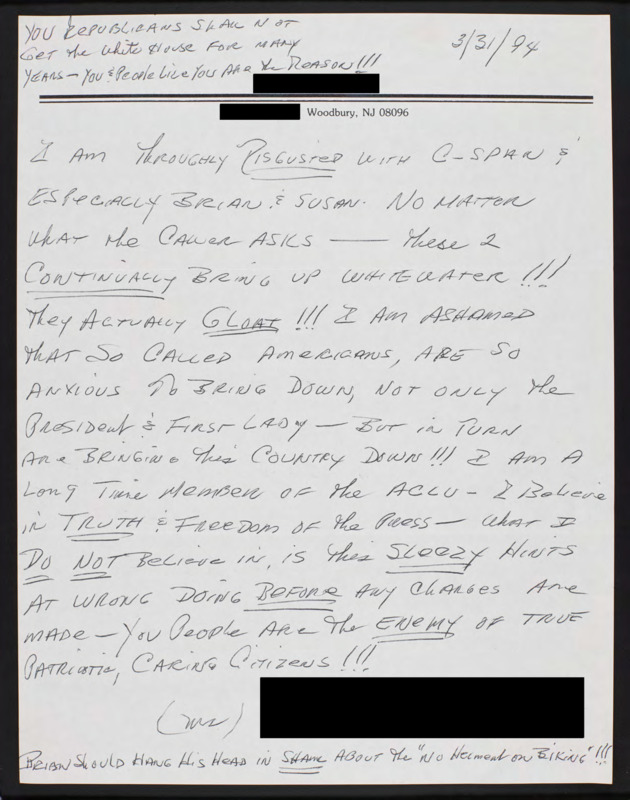 YOU REPUBLICANS SHALL NOT
Get the White House FOR MANY
YEARS — YOU & People Like You Are the Reason!!!
3/31/94
Woodbury, NJ 08096
I AM THROUGHLY DISGUSTED WITH C-SPAN &
ESPECIALLY BRIAN & SUSAN. NO MATTOR
WHAT the CALLER ASKS — These 2
CONTINUALLY BRING UP WHITEWATER!!!
They ACTUALLY GLOAT!!! I AM ASHAMED
that SO CALLED AMERICANS, ARE SO
ANXIOUS TO BRING DOWN, NOT ONLY the
President & FIRST LADY — BUT in TURN
Are BRINGING this COUNTRY DOWN!!! I AM A
Long Time member OF the ACLU — I Believe
in TRUTH & FREEDOM OF the Press — What I
DO NOT Believe in, IS this SLEEZY HINTS
AT WRONG DOING BEFORE ANY CHARGES Are
MADE — YOU PEOPLE ARE the ENEMY OF TRUE
PATRIOTIC, CARING CITIZENS!!!
(Mrs)
BRIAN SHOULD HANG HIS HEAD IN SHAME ABOUT the "NO HELMENT ON BIKING"!!!